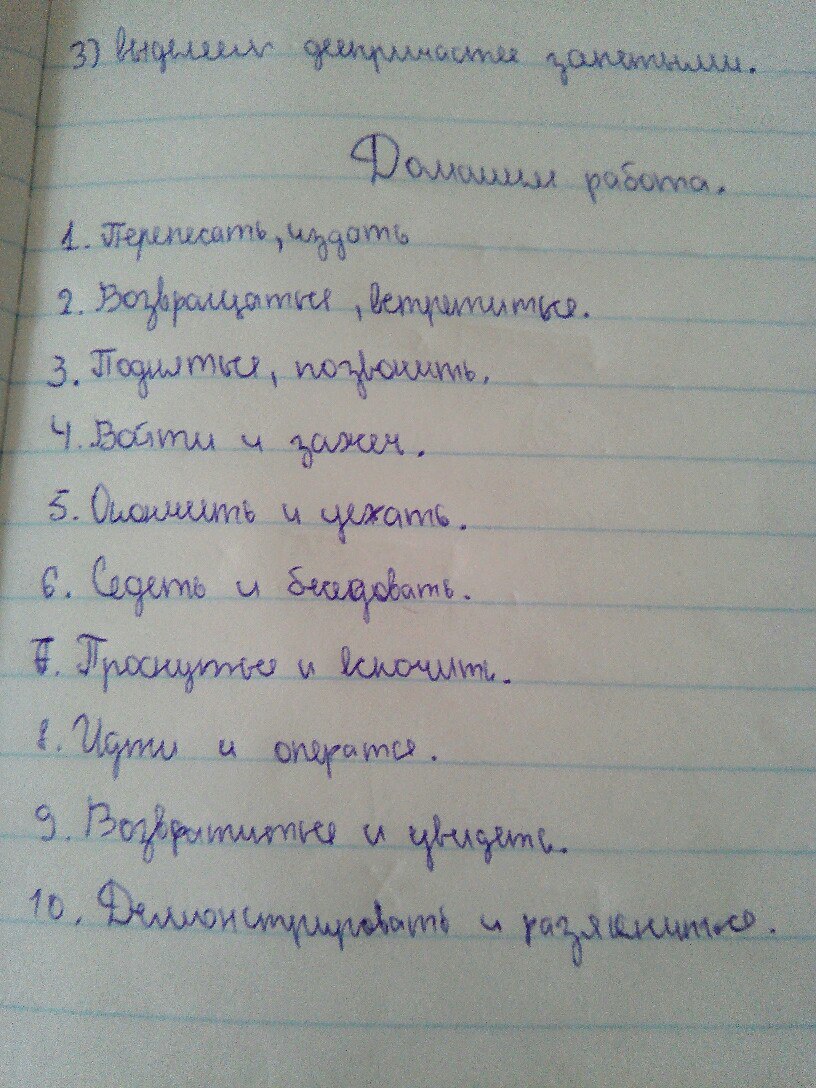 3) Выделяем деепричастие запетыми.
Домашняя работа.
1. Переписать, издать
2. Возвращаться, встретиться.
3. Подняться, позвонить.
4. Войти и зажеч.
5. Окончить и уехать.
6. Седеть и беседовать.
7. Проснуться и вскочить.
8. Идти и оператся.
9. Возвратиться и увидеть.
10. Демонстрировать и разяснитьсе.